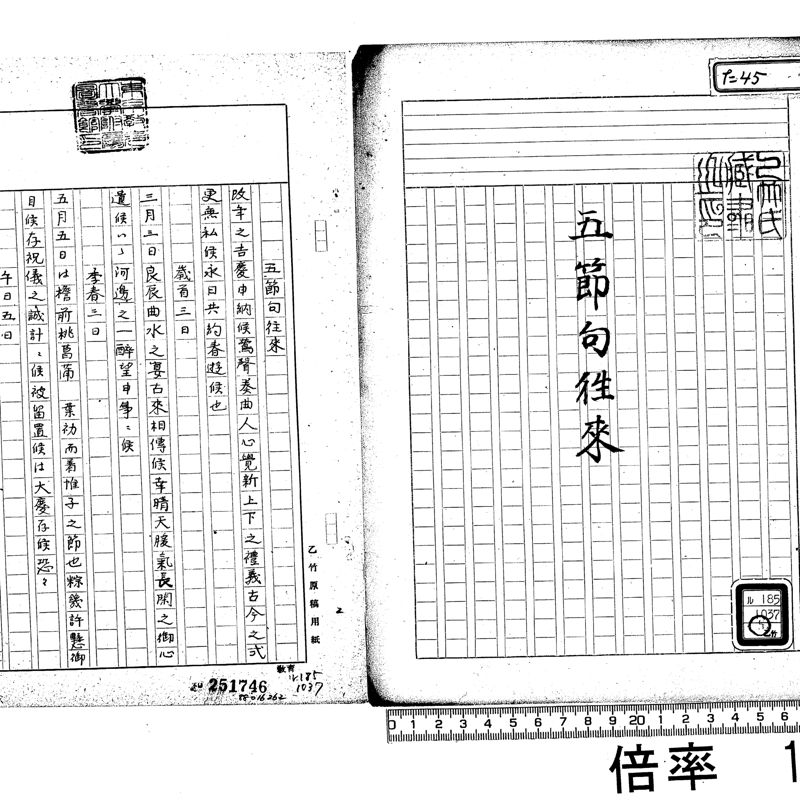 P=45
五節句往來
ル185
1037
乙竹
五節句往來
改年之吉慶申納候鶯聲奏曲人心覺新上下之禮義古今之式
更無私候永日共約春遊候也
歲首三日
三月三日良辰曲水之宴古來相傳候幸晴天暖氣長閑之御心
遣候ハヽ河邊之一醉望申事ニ候
季春三日
五月五日は檐前桃菖蒲 葉初而着惟子之節也粽幾許懸御
目候存祝儀之誠計ニ候被留置候は大慶存候恐々
午日五日
乙竹原稿用紙
2
教育
ル185
1037
251746
0 1 2 3 4 5 6 7 8 9 20 1 2 3 4 5 6
倍率 1